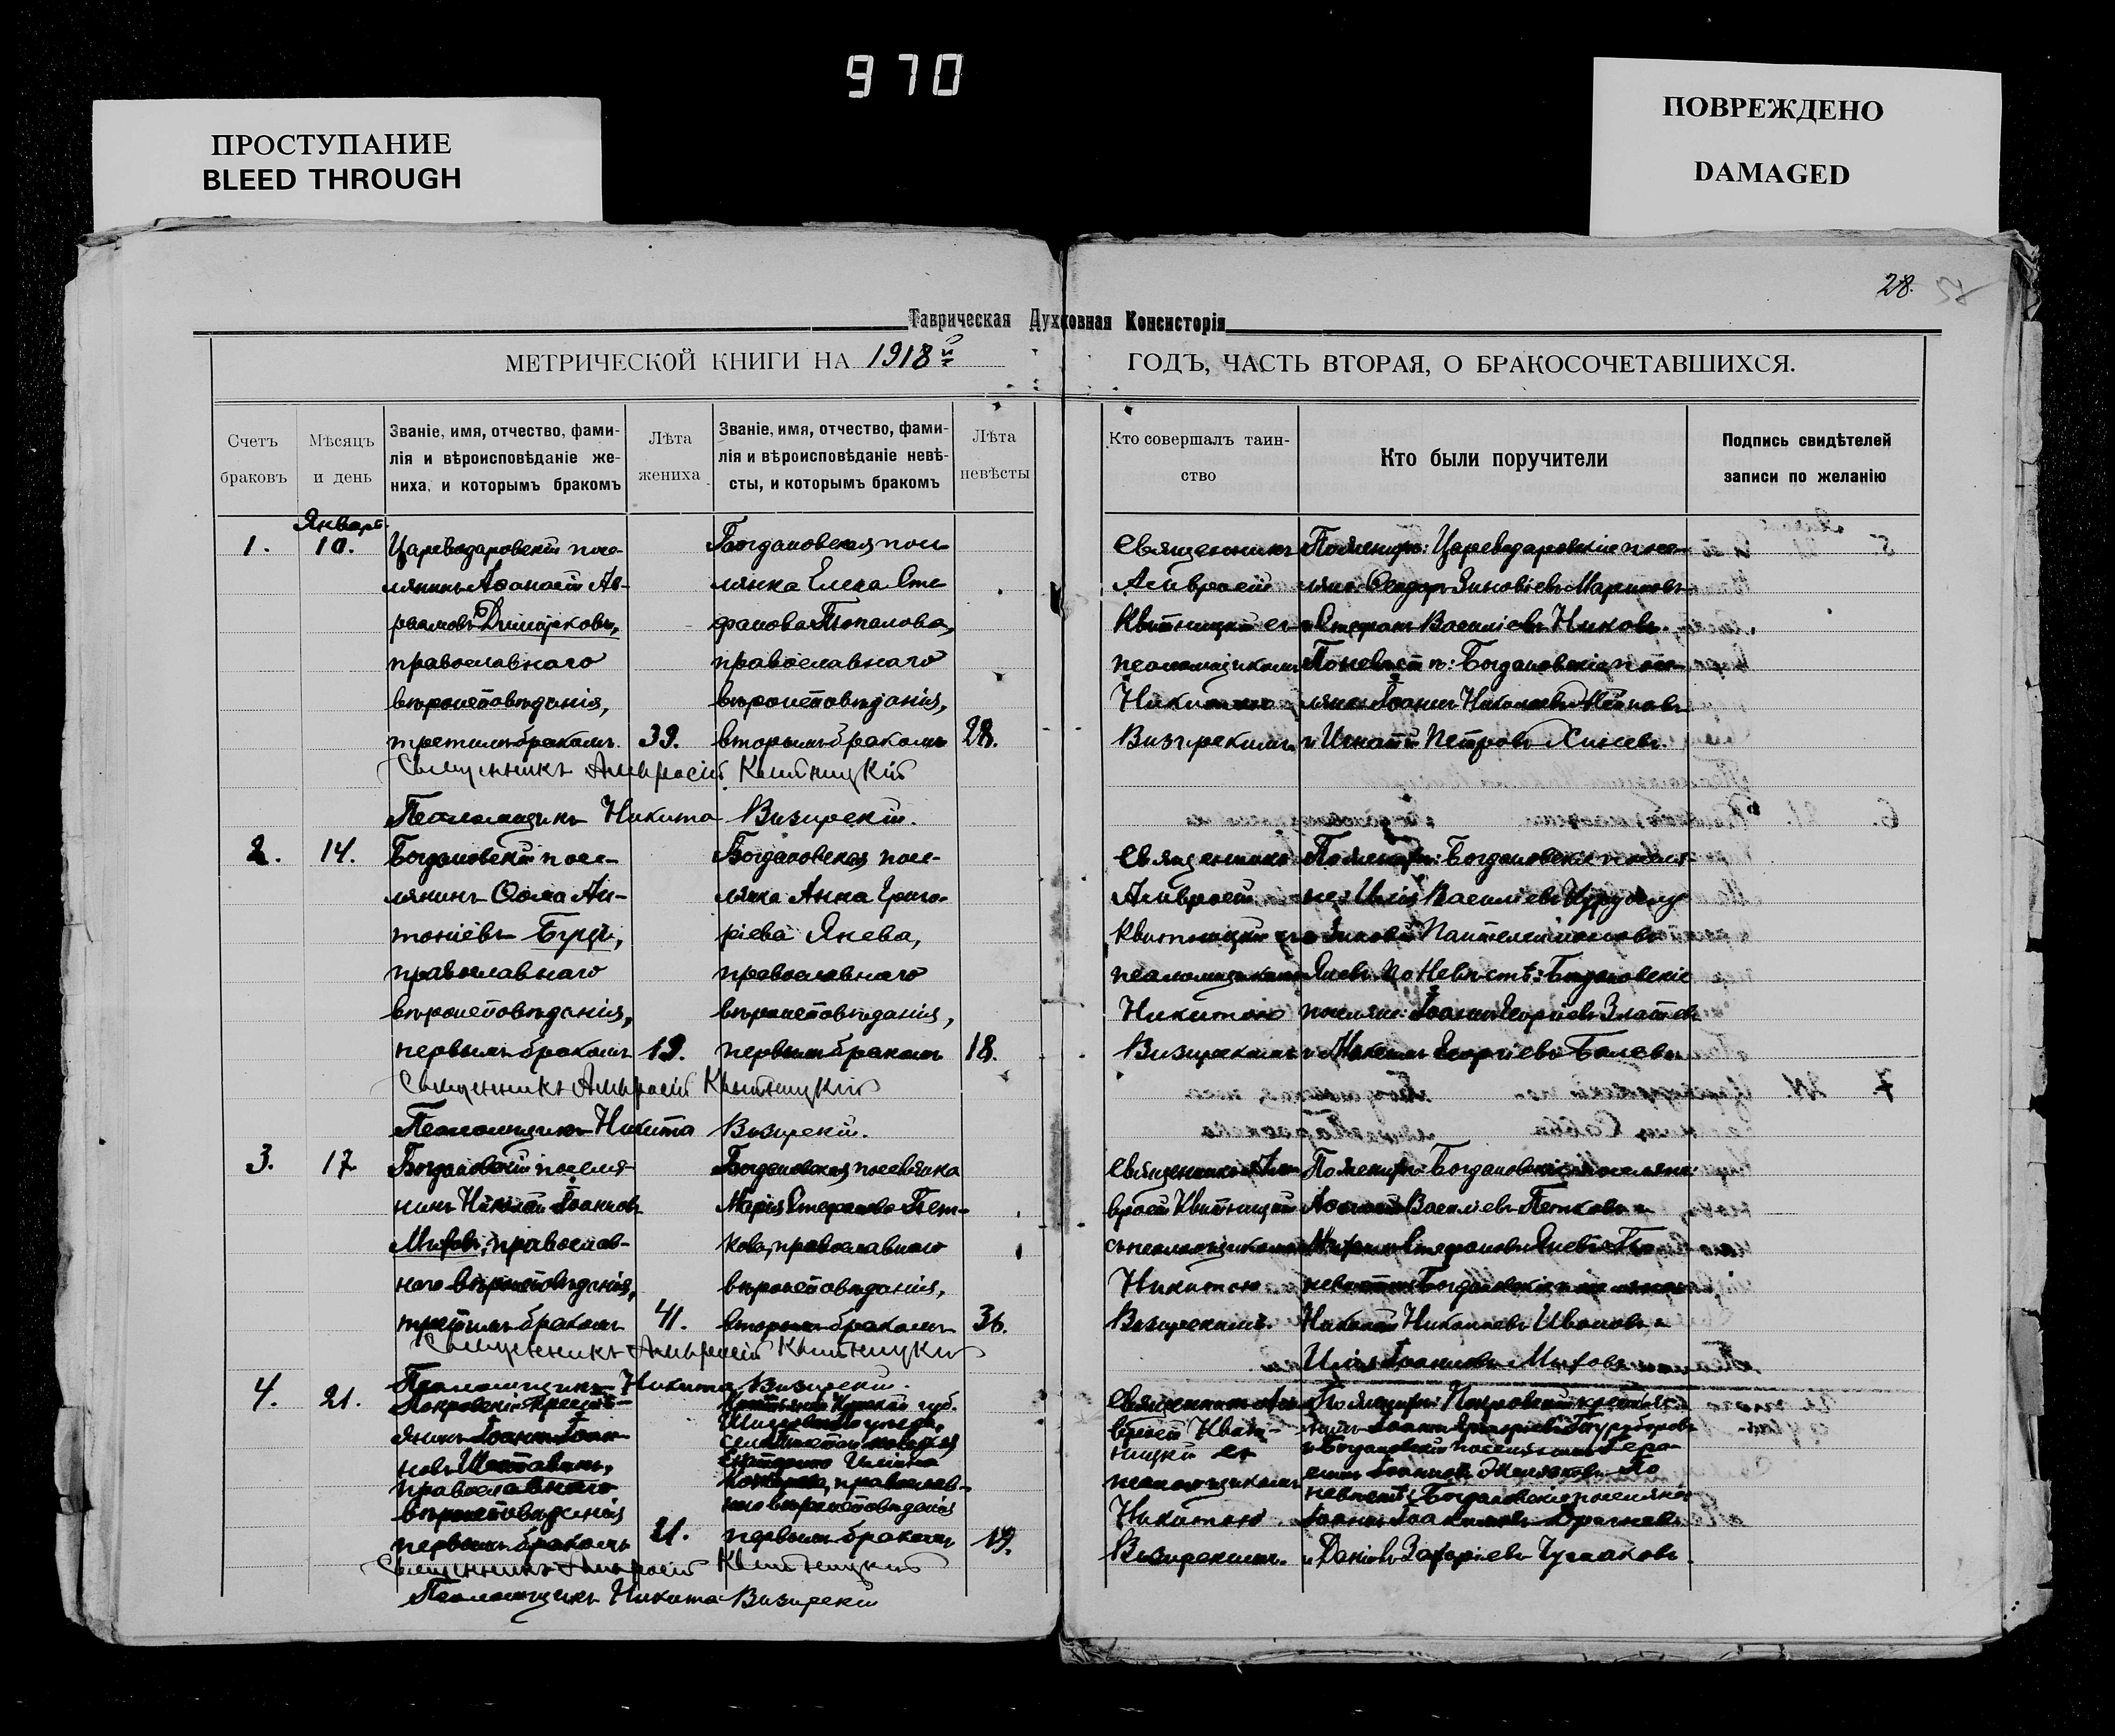 970
ПРОСТУПАНИЕ
BLEED THROUGH
ПОВРЕЖДЕНО
DAMAGED
28.
Таврическая Духовная Консисторія
МЕТРИЧЕСКОЙ КНИГИ НА 1918й ГОДЪ, ЧАСТЬ ВТОРАЯ, О БРАКОСОЧЕТАВШИХСЯ.
Счетъ
браковъ
Мѣсяцъ
и день
Званіе, имя, отчество, фами-
лія и вѣроисповѣданіе же-
ниха, и которымъ бракомъ
Лѣта
жениха
Званіе, имя, отчество, фами-
лія и вѣроисповѣданіе невѣ-
сты, и которымъ бракомъ
Лѣта
невѣсты
Кто совершалъ таин-
ство
Кто были поручители
Подпись свидѣтелей
записи по желанію
Январь
1.
10.
Цареводаровскій посе-
лянинъ Аѳанасій Ав-
рамовъ
православнаго
вѣроисповѣданія,
третьимъ бракомъ
39.
Богдановская посе-
лянка Елена Сте-
фанова Топалова,
православнаго
вѣроисповѣданія,
вторымъ бракомъ
28.
Священникъ
Амвросій
Квитницкій съ
псаломщикомъ
Никитою
Визирскимъ
По женихѣ: Цареводаровскіе посе-
ляне: Ѳеодоръ Зиновіевъ Мариновъ
и Стефанъ Василіевъ
По невѣстѣ: Богдановскіе посе-
ляне: Іоаннъ Николаевъ
и Игнатій Петровъ
Священникъ Амвросій Квитницкій
Псаломщикъ Никита Визирскій.
2.
14.
Богдановскій посе-
лянинъ Ѳома Ан-
тоніевъ
православнаго
вѣроисповѣданія,
первымъ бракомъ
19.
Богдановская посе-
лянка Анна Григо-
ріева Янева,
православнаго
вѣроисповѣданія,
первымъ бракомъ
18.
Священникъ
Амвросій
Квитницкій съ
псаломщикомъ
Никитою
Визирскимъ
По женихѣ: Богдановскіе поселя-
не: Илія Василіевъ
и Зиновій Пантелеимоновъ
Яневъ. По невѣстѣ: Богдановскіе
поселяне: Іоаннъ Георгіевъ Златевъ
и Георгіевъ
Священникъ Амвросій Квитницкій
Псаломщикъ Никита Визирскій.
3.
17
Богдановскій поселя-
нинъ Николай Іоанновъ
Миховъ, православ-
наго вѣроисповѣданія,
третьимъ бракомъ
41.
Богдановская поселянка
Марія Стефанова Пет-
кова, православнаго
вѣроисповѣданія,
вторымъ бракомъ
36.
Священникъ Ам-
вросій Квитницкій
съ псаломщикомъ
Никитою
Визирскимъ.
По женихѣ: Богдановскіе поселяне:
Василіевъ Петковъ и
Стефановъ Яневъ. По
невѣстѣ: Богдановскіе поселяне:
Николай Николаевъ Ивановъ и
Илія Іоанновъ Миховъ.
Священникъ Амвросій Квитницкій
Псаломщикъ Никита Визирскій.
4.
21.
Покровскій крестья-
янинъ Іоаннъ Іоан-
новъ
православнаго
вѣроисповѣданія
первымъ бракомъ
21.
Крестьянка Курской губ.
уѣзда,
Екатерина Иліина
православ-
наго вѣроисповѣданія
первымъ бракомъ
19.
Священникъ Ам-
вросій Квит-
ницкій съ
псаломщикомъ
Никитою
Визирскимъ.
По женихѣ: Покровскій крестья-
нинъ Іоаннъ Григоріевъ
и Богдановскій поселянинъ Гера-
симъ Іоанновъ По
невѣстѣ: Богдановскіе поселяне:
Іоаннъ Іоакимовъ Драгневъ
и Даніилъ Захаріевъ Чумаковъ.
Священникъ Амвросій Квитницкій
Псаломщикъ Никита Визирскій